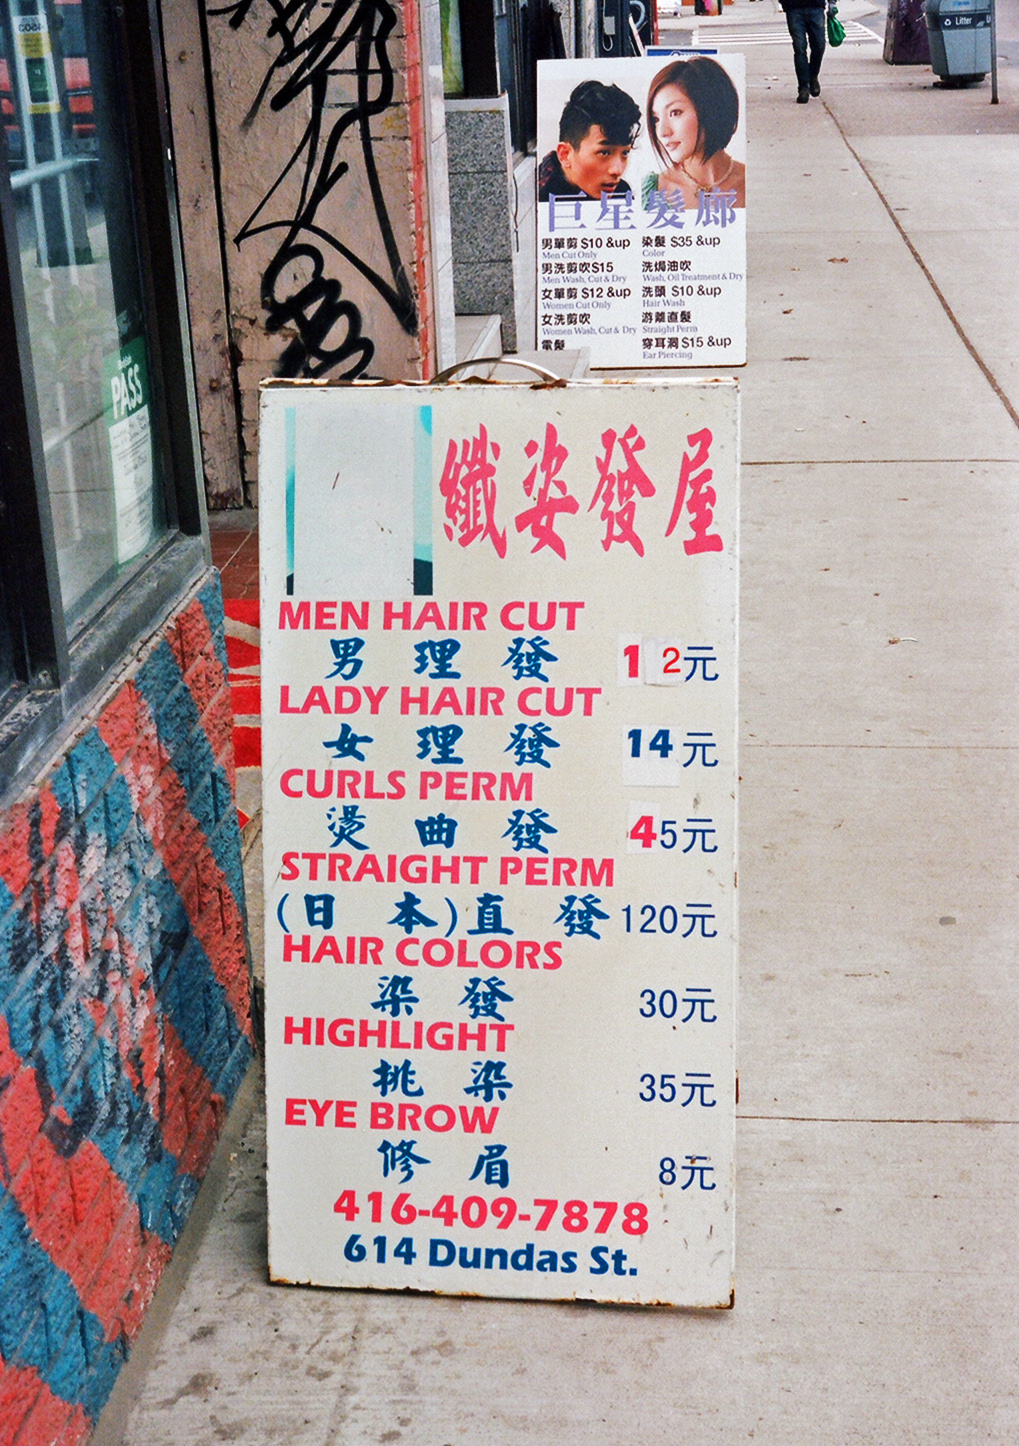 Litter
巨星髮廊
男單剪 $10 &up
Men Cut Only
男洗剪吹$15
Men Wash, Cut & Dry
女單剪 $12 &up
Women Cut Only
女洗剪吹
Women Wash, Cut & Dry
電髮
染髮 $35 &up
Color
洗焗油吹
Wash, Oil Treatment & Dry
洗頭 $10 &up
Hair Wash
游離直髮
Straight Perm
穿耳洞 $15 &up
Ear Piercing
PASS
纖姿發屋
MEN HAIR CUT
男理發 12元
LADY HAIR CUT
女理發 14元
CURLS PERM
燙曲發 45元
STRAIGHT PERM
(日本)直發 120元
HAIR COLORS
染發 30元
HIGHLIGHT
挑染 35元
EYE BROW
修眉 8元
416-409-7878
614 Dundas St.